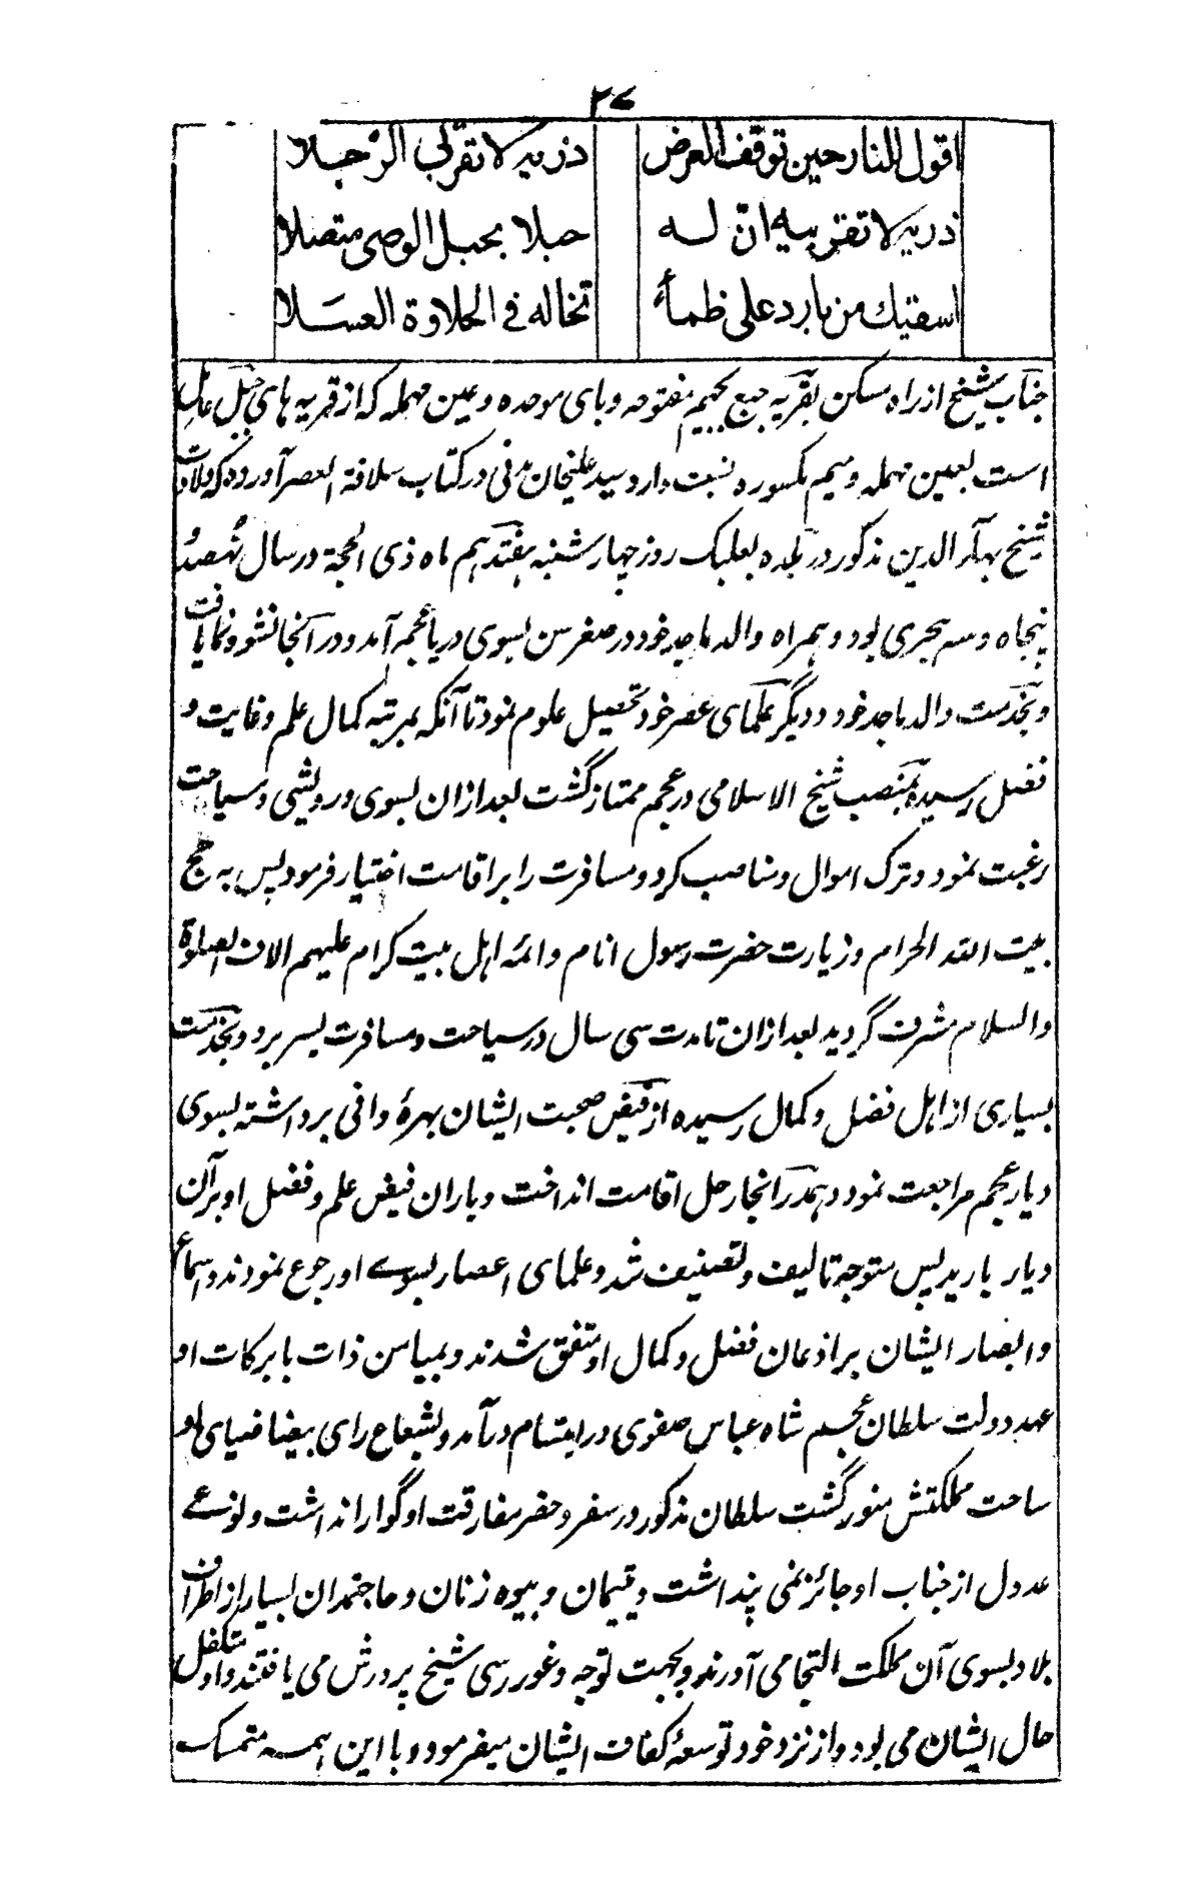 ٢٧
اقول للنار حين توقف للعرض ذريه لا تقربي الرجلا
ذريه لا تقربيه ان له حبلا بحبل الوصى متصلا
اسقيك من بارد على ظمأ تخاله في الحلاوة العسلا
جناب شیخ از راه مسکن بقریه جبع بجیم مفتوحه و بای موحده و عین مهمله که از قریه های جبل عامل
است بعین مهمله و میم مکسوره نسبت دارد و سید علیخان مدنی در کتاب سلافة العصر آورده که ولادت
شیخ بهاء الدین مذکور در بلده بعلبک روز چهار شنبه هفتدهم ماه ذی الحجة در سال نهصد و
پنجاه و سه هجری بود و همراه والد ماجد خود در صغر سن بسوی دیار عجم آمد و در آنجا نشو و نما یافت
و بخدمت والد ماجد خود و دیگر علمای عصر خود تحصیل علوم نمود تا آنکه بمرتبه کمال علم و غایت و
فضل رسیده بمنصب شیخ الاسلامی در عجم ممتاز گشت بعد ازان بسوی درویشی و سیاحت
رغبت نمود و ترک اموال و مناصب کرد و مسافرت را بر اقامت اختیار فرمود پس به حج
بیت الله الحرام و زیارت حضرت رسول انام و ائمه اهل بیت کرام علیهم الاف الصلوة
والسلام مشرف گردید بعد ازان تا مدت سی سال در سیاحت و مسافرت بسر برد و بخدمت
بسیاری از اهل فضل و کمال رسیده از فیض صحبت ایشان بهرۀ وافی برداشته بسوی
دیار عجم مراجعت نمود و همدر آنجا رحل اقامت انداخت و باران فیض علم و فضل او بر آن
دیار بارید پس متوجه تالیف و تصنیف شد و علمای اعصار بسوے او رجوع نمودند و اسماع
و ابصار ایشان بر اذعان فضل و کمال او متفق شدند و بمیامن ذات بابرکات او
عهد دولت سلطان عجم شاه عباس صفوی در ابتسام درآمد و بشعاع رای بیضا ضیای او
ساحت مملکتش منور گشت سلطان مذکور در سفر و حضر مفارقت او گوارا نداشت و نوعے
عدول از جناب او جائز نمی پنداشت و یتیمان و بیوه زنان و حاجتمندان بسیار از اطراف
بلاد بسوی آن مملکت التجا می آوردند و بجهت توجه و غور رسی شیخ پرورش می یافتند و او متکفل
حال ایشان می بود و از نزد خود توسعۀ کفاف ایشان میفرمود و با این همه متمسک